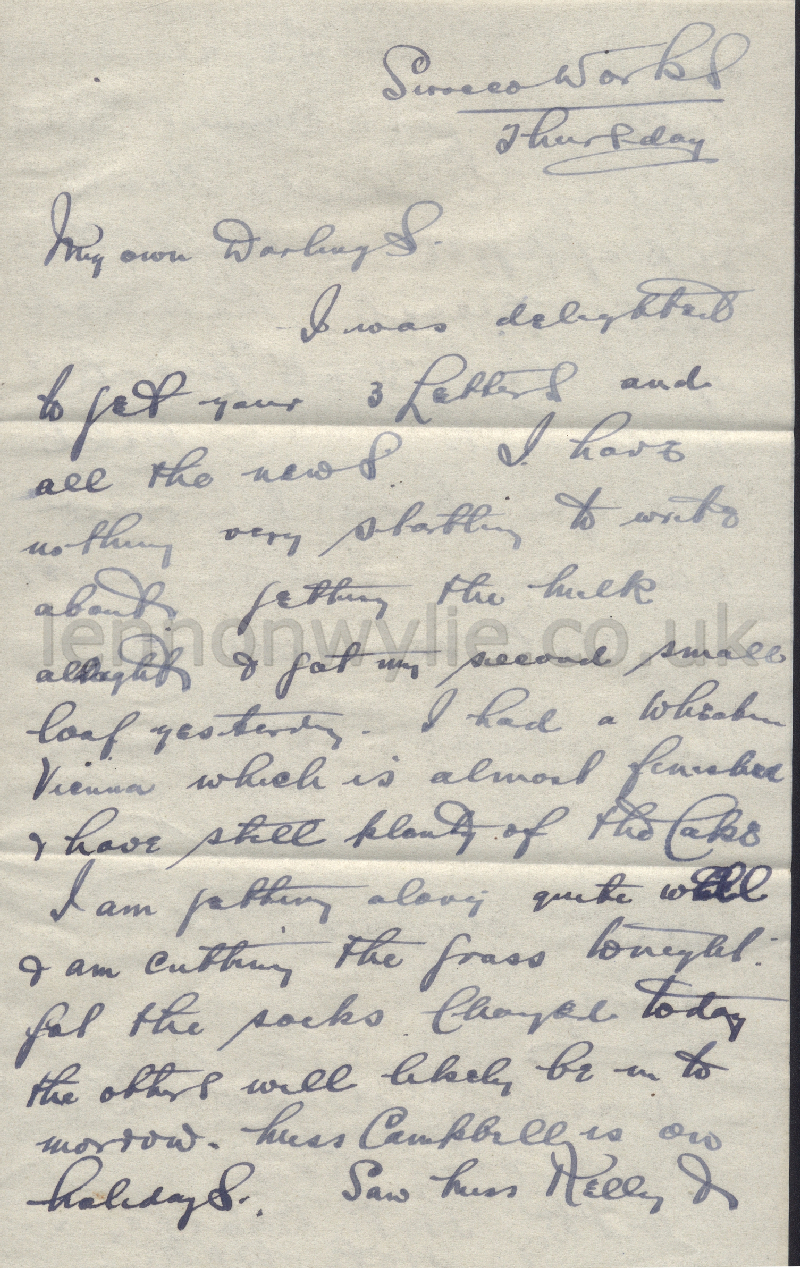 Sirocco Works
Thursday
My own Darlings.
I was delighted
to get your 3 Letters and
all the news I have
nothing very startling to write
about getting the milk
lennonwylie.co.uk
allright & got my second small
loaf yesterday. I had a Wheaten
Vienna which is almost finished
& have still plenty of the Cake
I am getting along quite well
& am cutting the grass tonight.
Got the socks changed today
the others will likely be in to
morrow. Miss Campbell is on
holidays. Saw Miss Kelly &